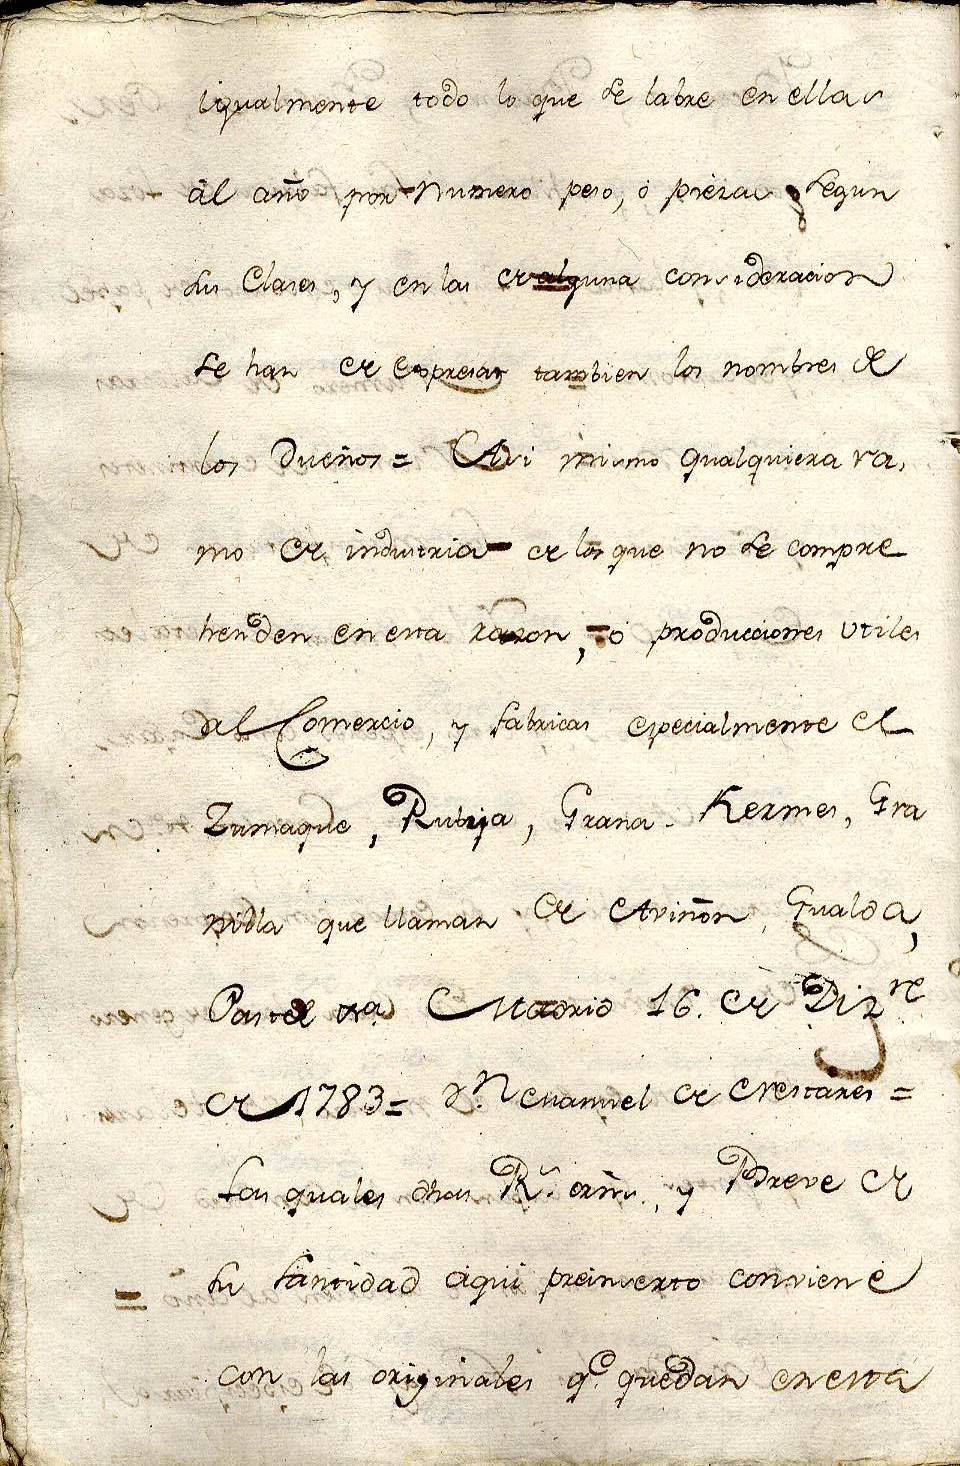 igualmente todo lo que se labre en ellas
al año por Numero peso, ó piezas segun
sus Clases, y en las de alguna consideracion
se han de expresar tambien los nombres de
los Dueños = Asi mismo qualquiera ra,
mo de industria de los que no se compre
henden en esta razon, ó producciones utiles
al Comercio, y fabricas especialmente el
Zumaque, Rubia, Grana Kermes, Gra
nilla que llaman de Aviñon, Gualda,
Pastel &a Madrid 16. de Dizre
de 1783 = Dn Manuel de Nestares =
Las quales dhas Rs. orns., y Breve de
su Santidad aqui preinserto conviene
con las originales qe. quedan en esta